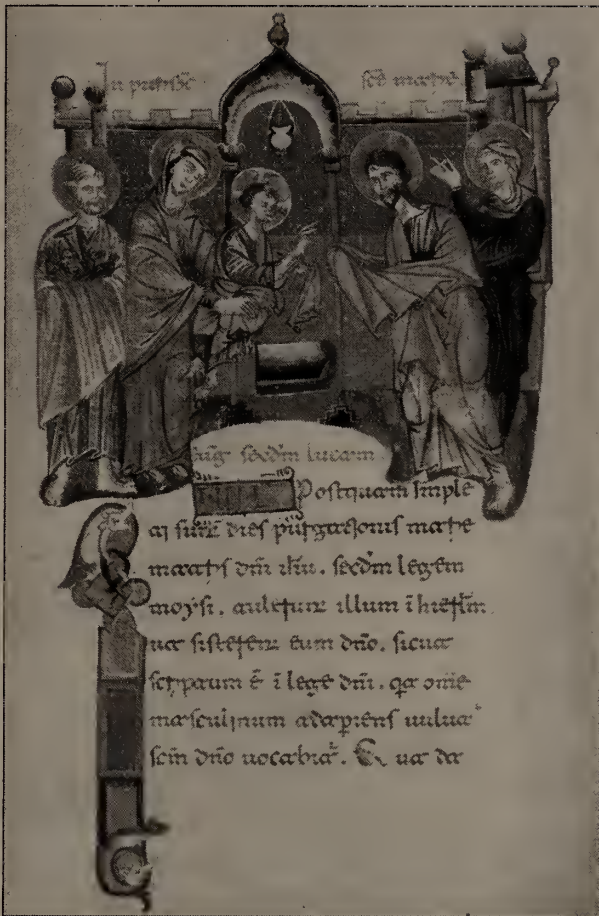 In purif sc̄e marie
secdm̄ lucam
Postquam Imple
ti sunt dies purgationis marie
matris dn̄i ih̄u. secdm̄ legem
moysi. tulerunt illum ī hierl̄m
ut sisterent eum dn̄o. sicut
scriptum ē ī lege dn̄i. qa om̄e
masculinum adap̄iens uuluā
scm̄ dn̄o uocabit̄. Et ut da